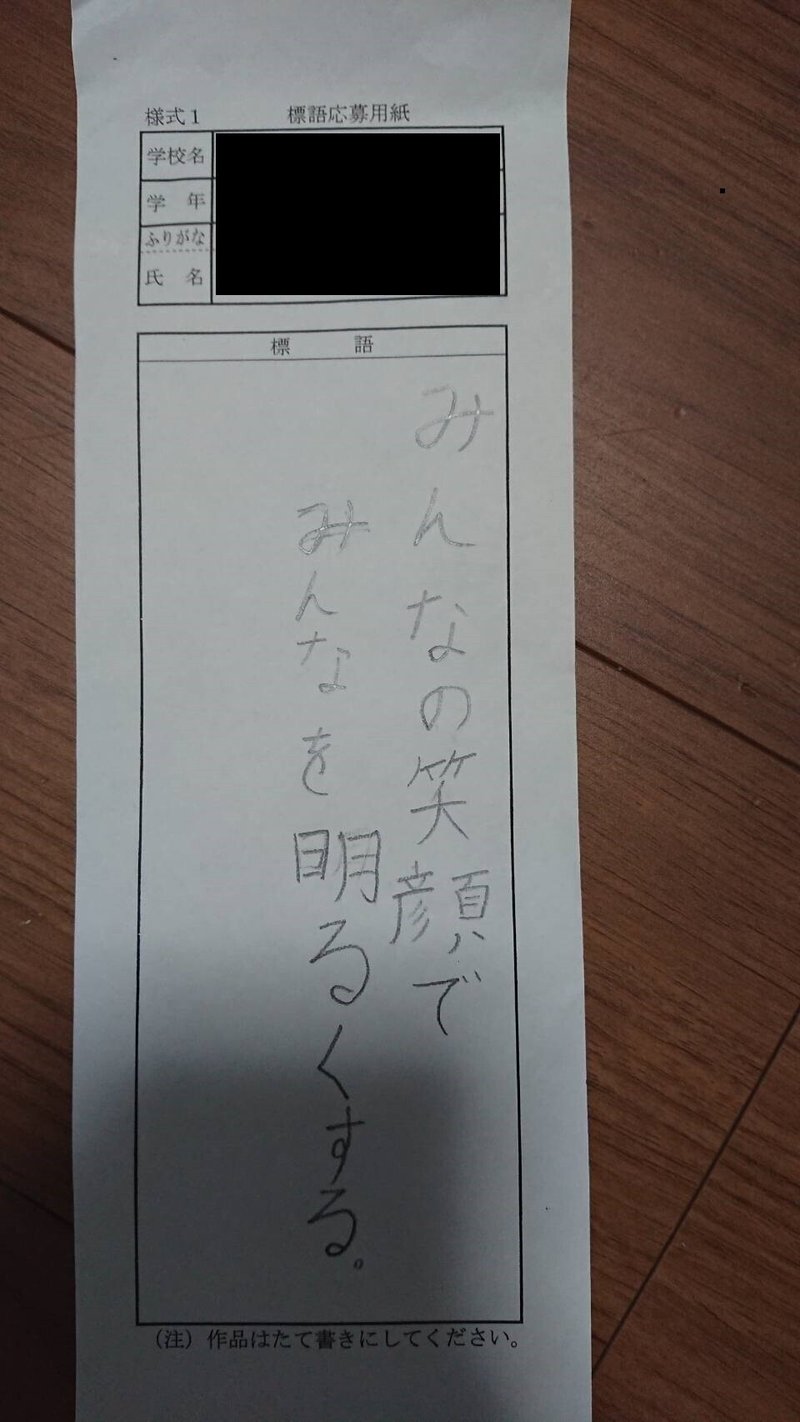 様式1 標語応募用紙
学校名
学 年
ふりがな
氏 名
標 語
みんなの笑顔で
みんなを明るくする。
（注）作品はたて書きにしてください。